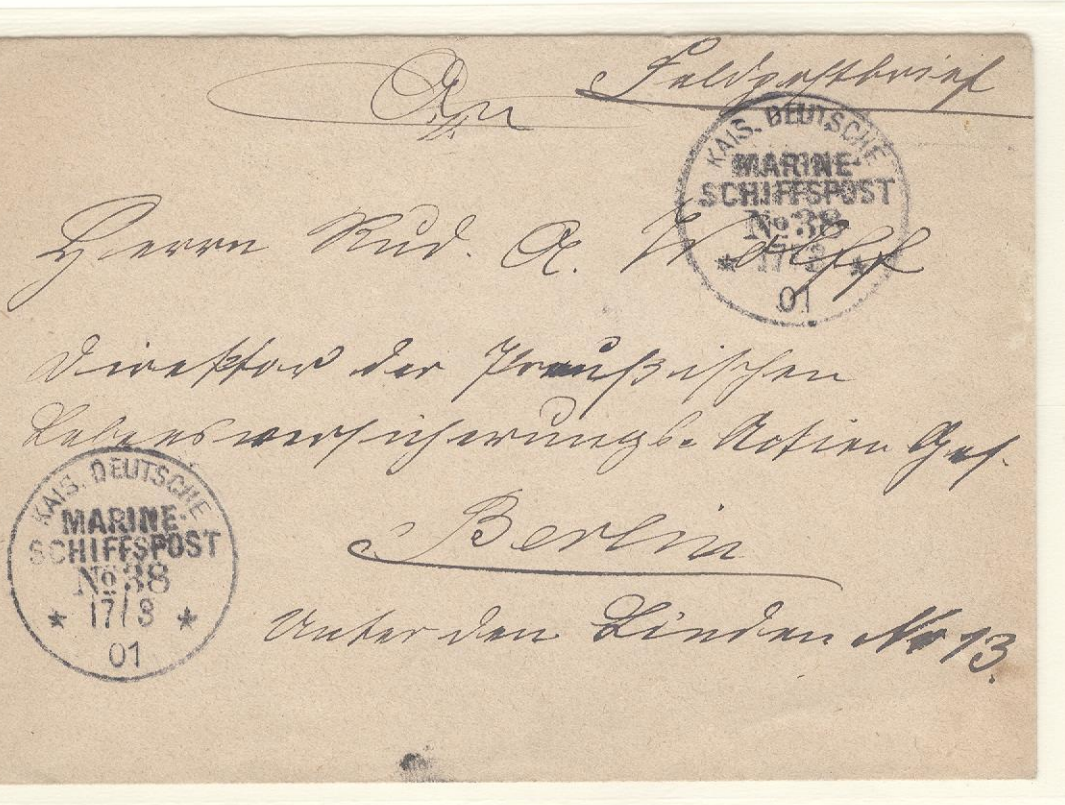 Feldpostbrief
An
KAIS. DEUTSCHE
MARINE-
SCHIFFSPOST
No 38
* 17/3 *
01
Herrn Rud. A. Wolff
Direktor der Preußischen
Lebensversicherungs-Actien Ges.
Berlin
Unter den Linden No 13.
KAIS. DEUTSCHE
MARINE-
SCHIFFSPOST
No 38
* 17/3 *
01